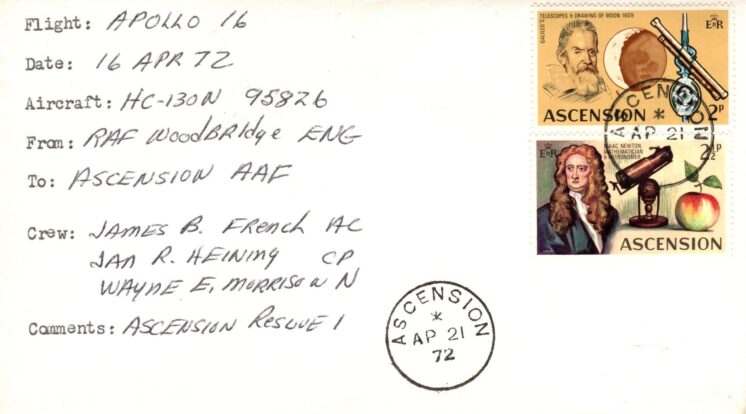 Flight: APOLLO 16
Date: 16 APR 72
Aircraft: HC-130N 95826
From: RAF WoodBRIdge ENG
To: ASCENSION AAF
Crew: JAMES B. FRENCH AC
JAN R. HEINING CP
WAYNE E. MORRISON N
Comments: ASCENSION RESCUE 1
GALILEO'S TELESCOPES & DRAWING OF MOON 1609
E II R
ASCENSION
2p
ASCENSION
*
AP 21
E II R
ISAAC NEWTON,
MATHEMATICIAN
& ASTRONOMER
2½p
ASCENSION
ASCENSION
*
AP 21
72